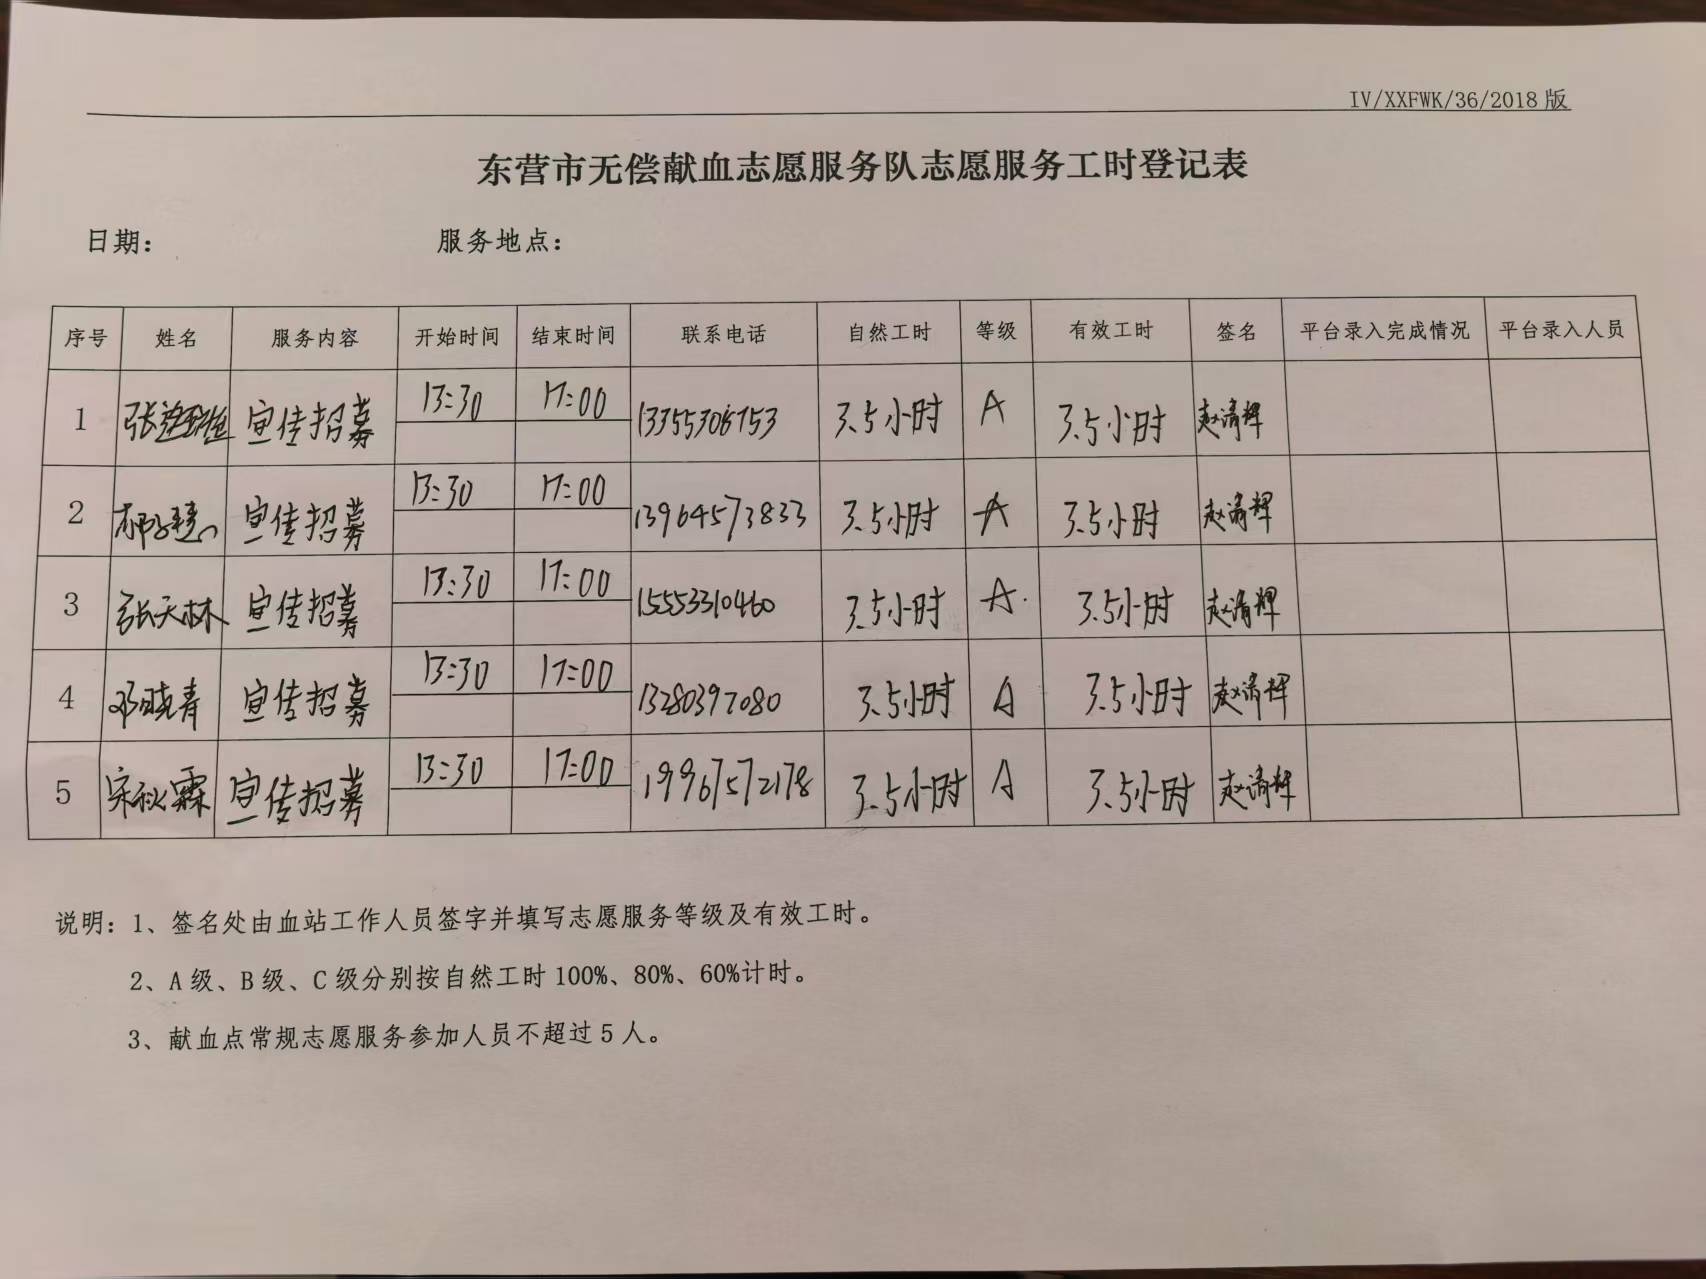 IV/XXFWK/36/2018 版
东营市无偿献血志愿服务队志愿服务工时登记表
日期： 服务地点：
序号 姓名 服务内容 开始时间 结束时间 联系电话 自然工时 等级 有效工时 签名 平台录入完成情况 平台录入人员
1 张 宣传招募 13:30 17:00 3.5小时 A 3.5小时 赵清辉
2 宣传招募 13:30 17:00 13964573833 3.5小时 A 3.5小时 赵清辉
3 张天林 宣传招募 13:30 17:00 15553310460 3.5小时 A 3.5小时 赵清辉
4 邓晓青 宣传招募 13:30 17:00 13280397080 3.5小时 A 3.5小时 赵清辉
5 宋秋霖 宣传招募 13:30 17:00 19967572178 3.5小时 A 3.5小时 赵清辉
说明：1、签名处由血站工作人员签字并填写志愿服务等级及有效工时。
2、A 级、B 级、C 级分别按自然工时 100%、80%、60%计时。
3、献血点常规志愿服务参加人员不超过 5 人。